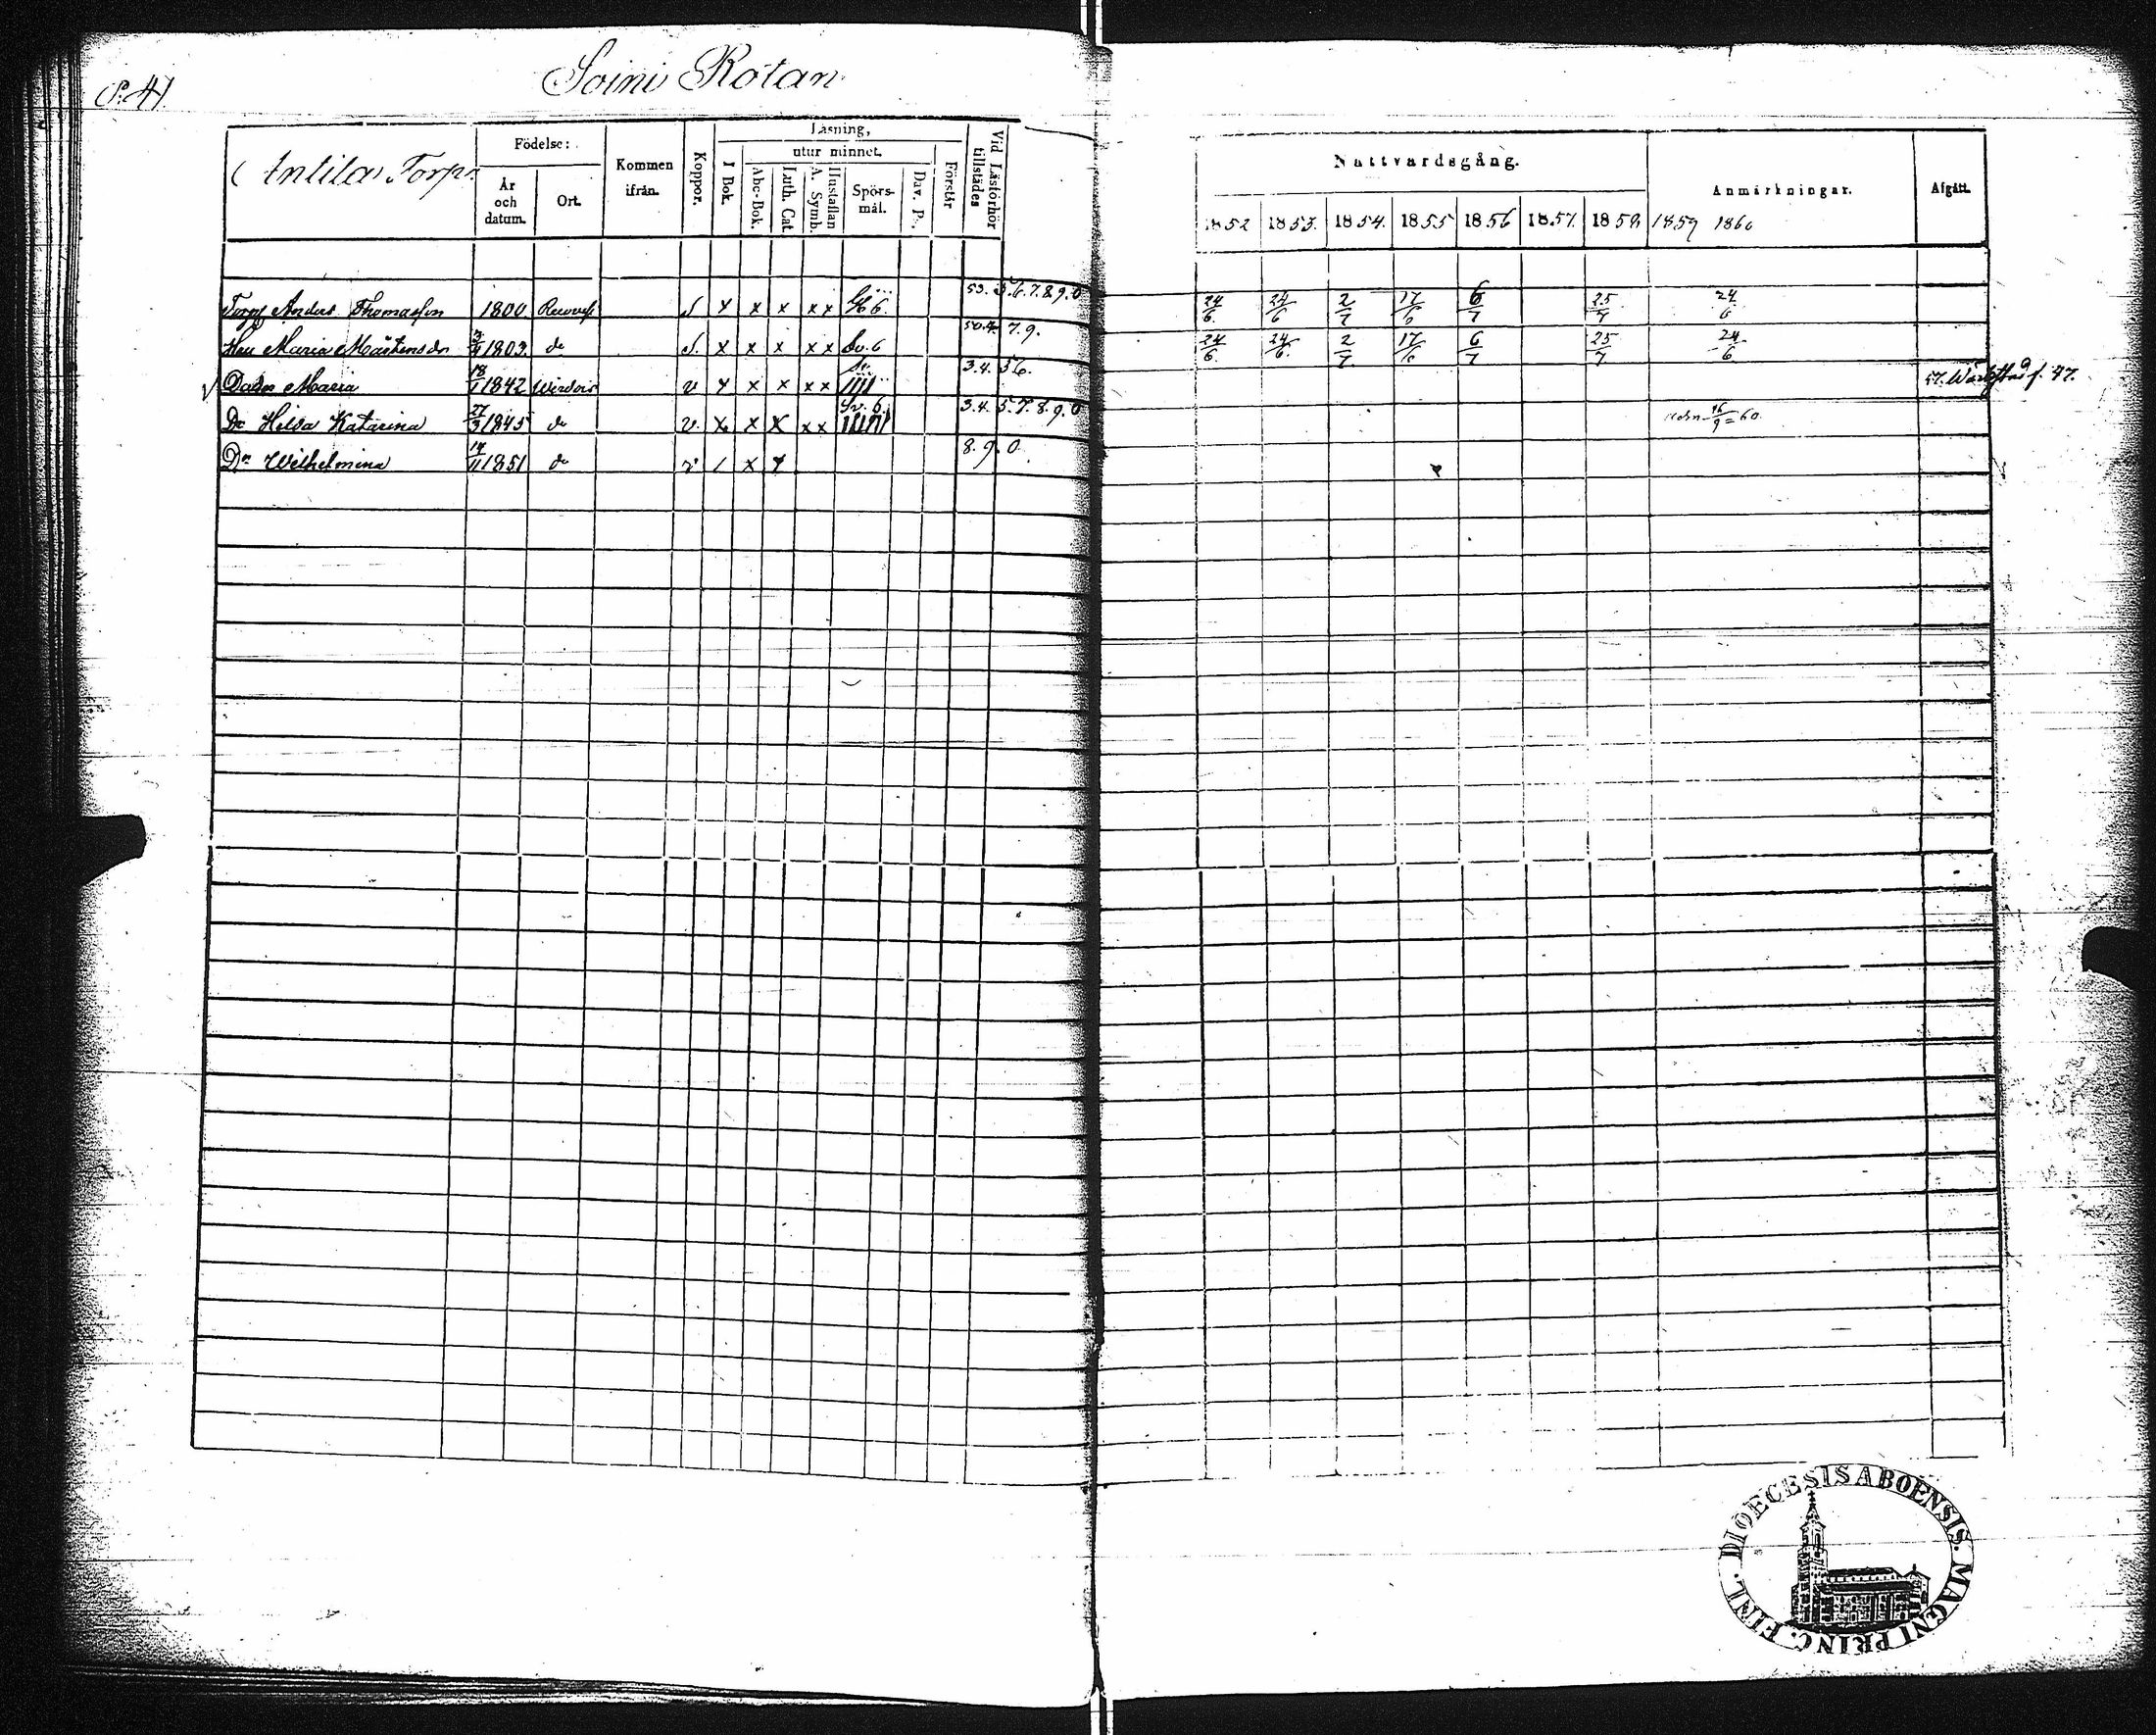 S. 41.
Soini Rotan
Antila Torp.
Födelse:
År och datum.
Ort.
Kommen ifrån.
Koppor.
Läsning,
I Bok.
utur minnet.
Abc-Bok.
Luth. Cat.
Hustaflan A. Symb.
Spörsmål.
Dav. P.
Förstår
Vid Läsförhör tillstädes
Nattvardsgång.
1852 1853. 1854. 1855 1856 1857. 1858 1859 1860
Anmärkningar.
Afgått.
Torp Anders Thomasson 1800 S x x x x x 6. 53. 5.6.7.8.9.0 24/6. 24/6 2/7 17/6 6/7 25/7 24/6
Hu Maria Mårtensdr 3/4 1803. do S. x x x x x Sv. 6 7.9. 24/6. 24/6. 2/7 17/6 6/7 25/7 24/6
Dottr Maria 18/1 1842 v x x x x x 3.4. 56. 57. f. 47.
Do Helsa Katarina 27/3 1845 do v. x x x x x Sv. 6. 3.4. 5.7.8.9.0 16/9 = 60
Do Wilhelmina 14/11 1851 do v / x x 8.9.0
DIOECESIS ABOENSIS. MAGNI PRINC. FINL.